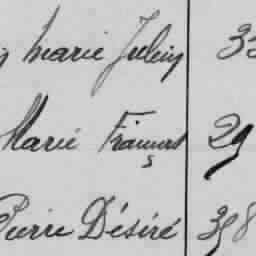 Marie Julien 33
Marie François 29
Pierre Désiré 398